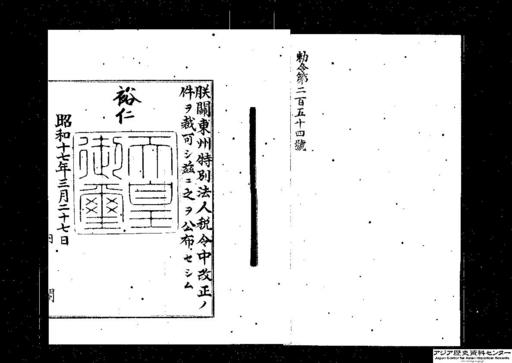 勅令第二百五十四號
朕關東州特別法人税令中改正ノ
件ヲ裁可シ茲ニ之ヲ公布セシム
裕仁
天皇
御璽
昭和十七年三月二十七日
アジア歴史資料センター
Japan Center for Asian Historical Records